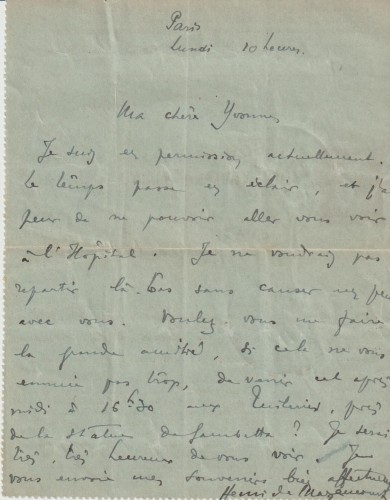 Paris
lundi 10 heures.
Ma chère Yvonne,
Je suis en permission actuellement.
Le temps passe en éclair, et j'ai
peur de ne pouvoir aller vous voir
à l'Hôpital. Je ne voudrais pas
repartir là-bas sans causer un peu
avec vous. Voulez-vous me faire
la grande amitié, si cela ne vous
ennuie pas trop, de venir cet après
midi à 16h30 aux Tuileries, près
de la statue de Gambetta ? Je serai
très, très heureux de vous voir. Je
vous envoie mes souvenirs bien affectueux
Henri de